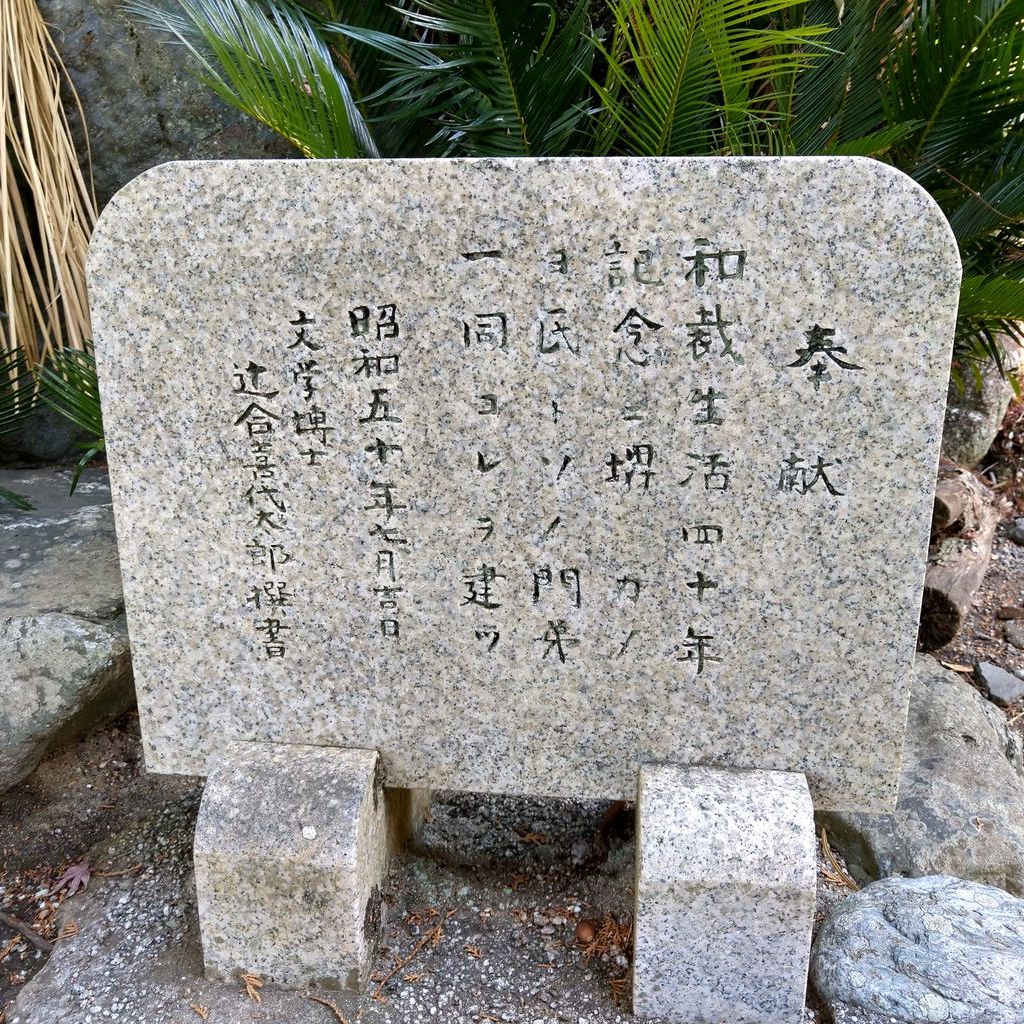 奉献
和裁生活四十年
記念ニ堺カノ
ヨ氏トソノ門弟
一同コレヲ建ツ
昭和五十年七月吉日
文学博士
辻合喜代太郎撰書